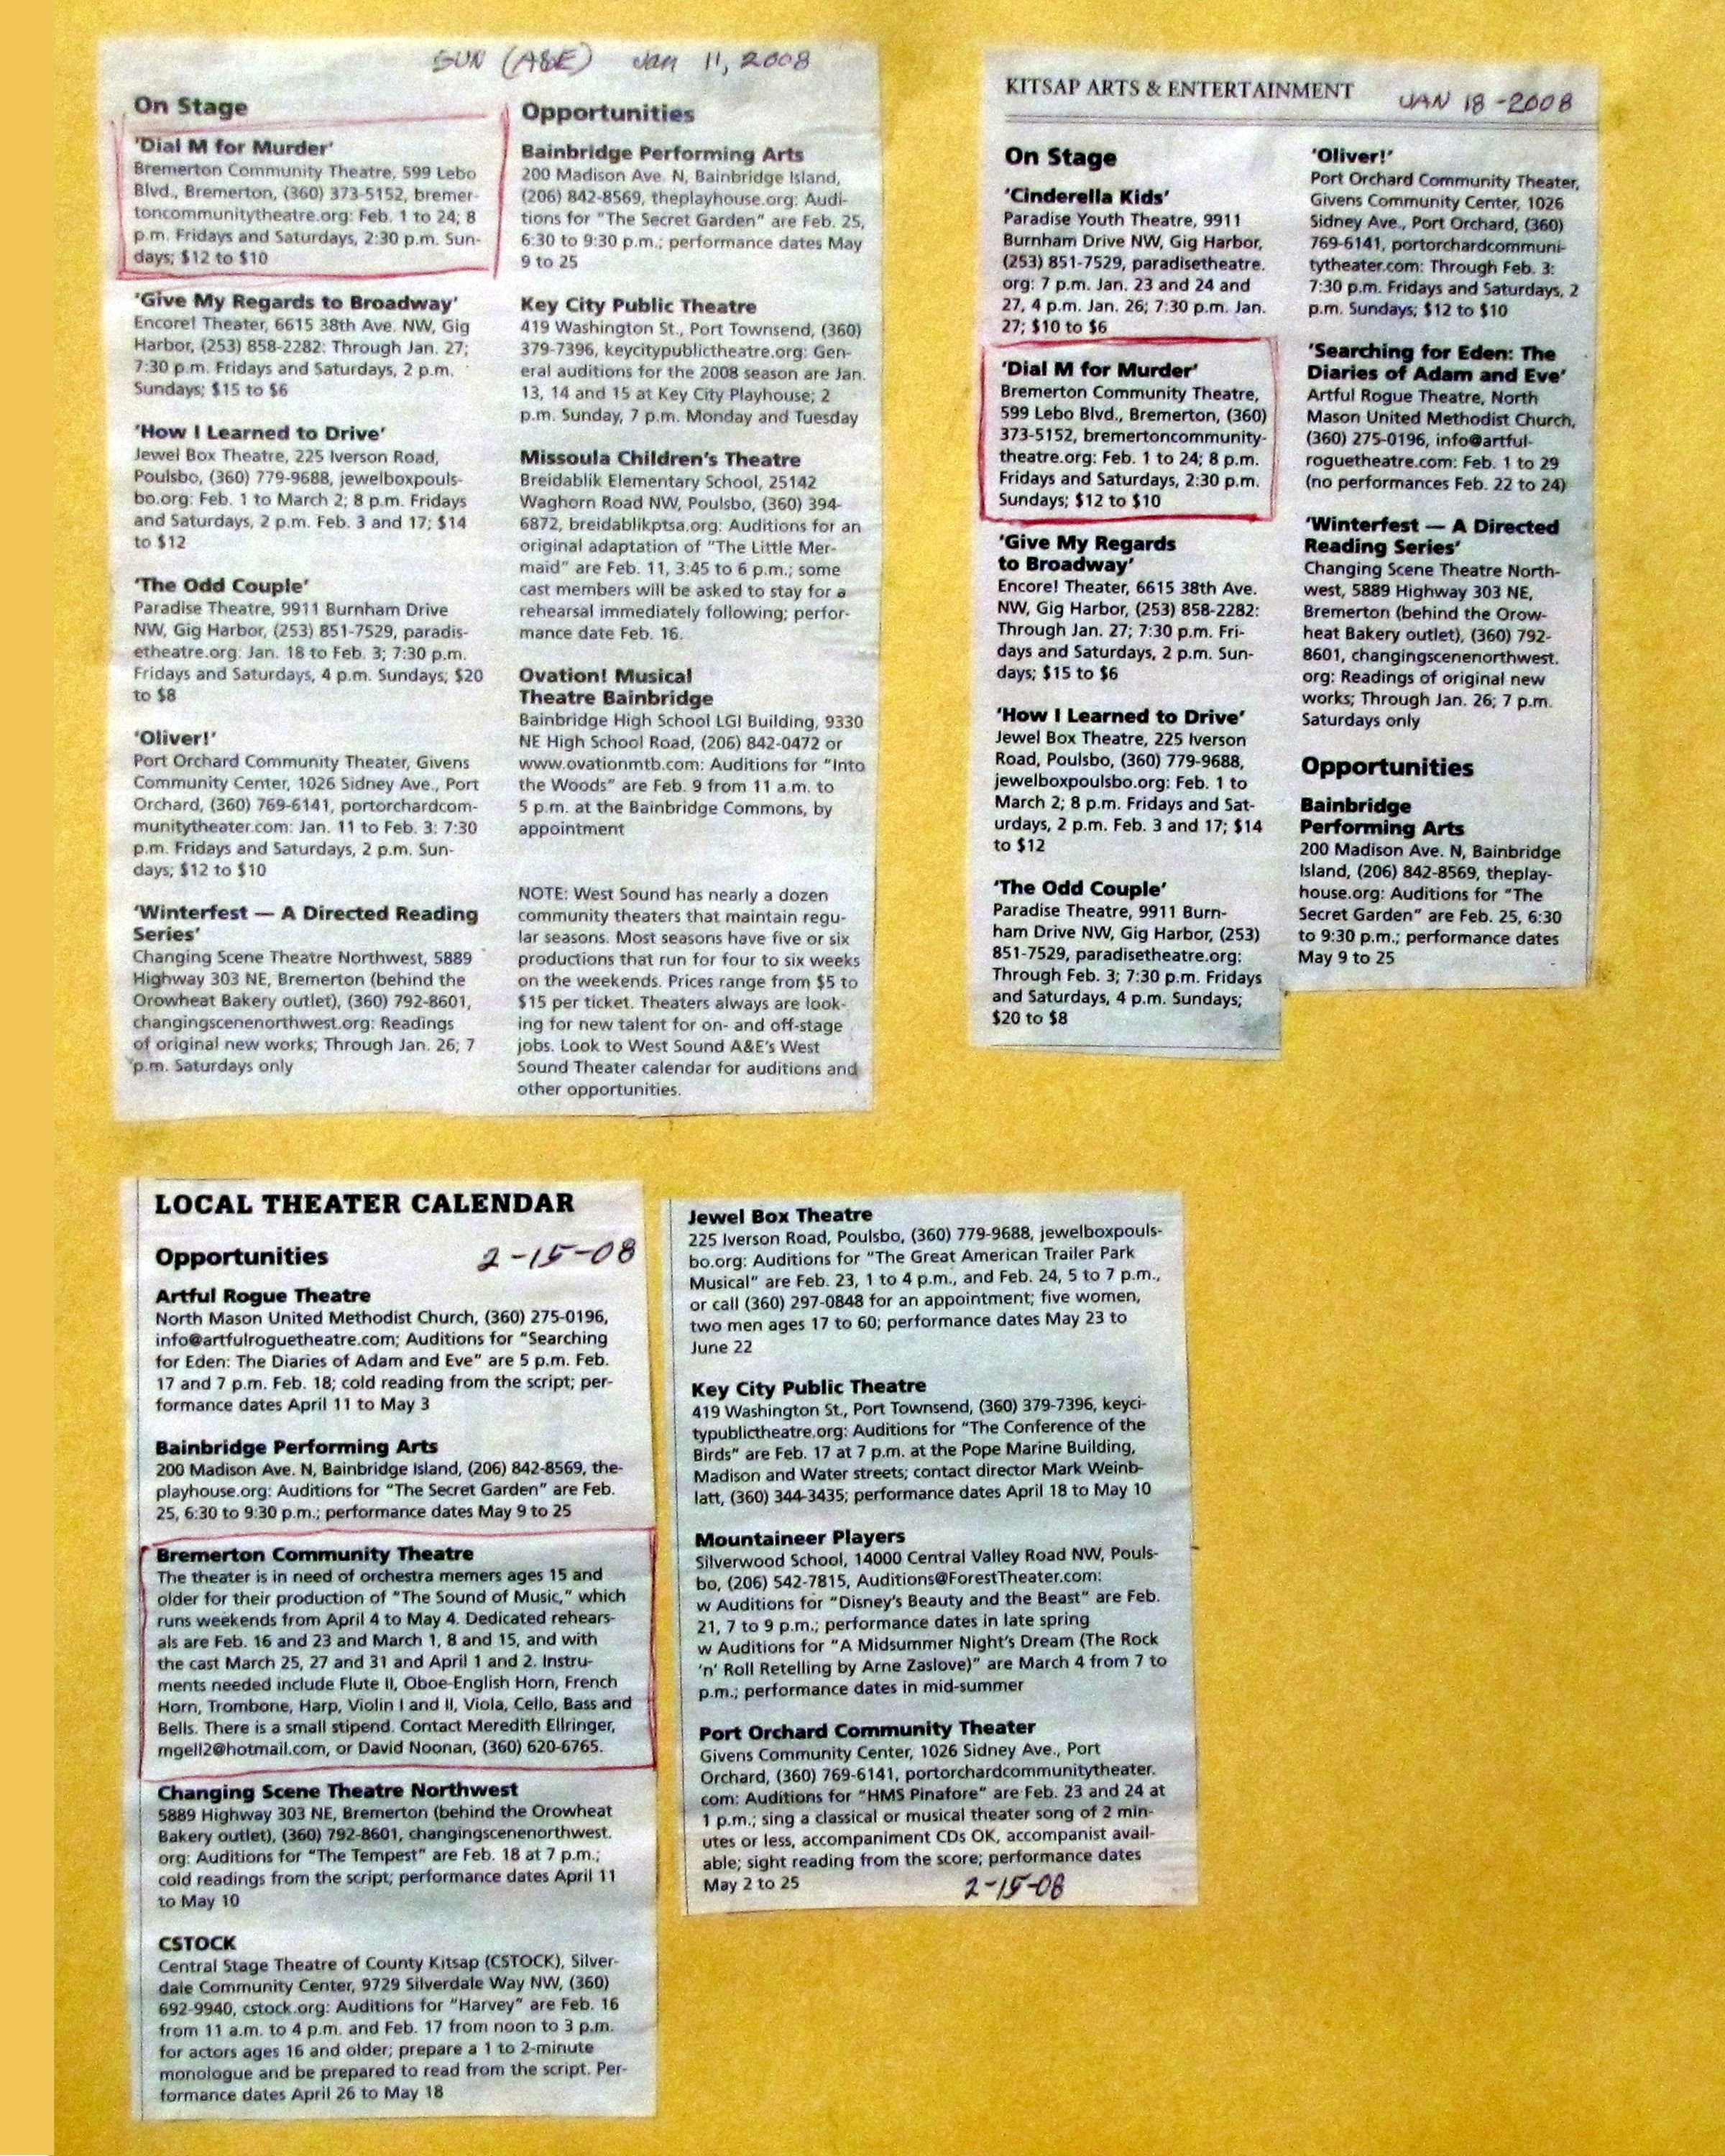 SUN (A&E) Jan 11, 2008
On Stage
'Dial M for Murder'
Bremerton Community Theatre, 599 Lebo
Blvd., Bremerton, (360) 373-5152, bremer-
toncommunitytheatre.org: Feb. 1 to 24; 8
p.m. Fridays and Saturdays, 2:30 p.m. Sun-
days; $12 to $10
'Give My Regards to Broadway'
Encore! Theater, 6615 38th Ave. NW, Gig
Harbor, (253) 858-2282: Through Jan. 27;
7:30 p.m. Fridays and Saturdays, 2 p.m.
Sundays; $15 to $6
'How I Learned to Drive'
Jewel Box Theatre, 225 Iverson Road,
Poulsbo, (360) 779-9688, jewelboxpouls-
bo.org: Feb. 1 to March 2; 8 p.m. Fridays
and Saturdays, 2 p.m. Feb. 3 and 17; $14
to $12
'The Odd Couple'
Paradise Theatre, 9911 Burnham Drive
NW, Gig Harbor, (253) 851-7529, paradis-
etheatre.org: Jan. 18 to Feb. 3; 7:30 p.m.
Fridays and Saturdays, 4 p.m. Sundays; $20
to $8
'Oliver!'
Port Orchard Community Theater, Givens
Community Center, 1026 Sidney Ave., Port
Orchard, (360) 769-6141, portorchardcom-
munitytheater.com: Jan. 11 to Feb. 3: 7:30
p.m. Fridays and Saturdays, 2 p.m. Sun-
days; $12 to $10
'Winterfest — A Directed Reading
Series'
Changing Scene Theatre Northwest, 5889
Highway 303 NE, Bremerton (behind the
Orowheat Bakery outlet), (360) 792-8601,
changingscenenorthwest.org: Readings
of original new works; Through Jan. 26; 7
p.m. Saturdays only
Opportunities
Bainbridge Performing Arts
200 Madison Ave. N, Bainbridge Island,
(206) 842-8569, theplayhouse.org: Audi-
tions for "The Secret Garden" are Feb. 25,
6:30 to 9:30 p.m.; performance dates May
9 to 25
Key City Public Theatre
419 Washington St., Port Townsend, (360)
379-7396, keycitypublictheatre.org: Gen-
eral auditions for the 2008 season are Jan.
13, 14 and 15 at Key City Playhouse; 2
p.m. Sunday, 7 p.m. Monday and Tuesday
Missoula Children's Theatre
Breidablik Elementary School, 25142
Waghorn Road NW, Poulsbo, (360) 394-
6872, breidablikptsa.org: Auditions for an
original adaptation of "The Little Mer-
maid" are Feb. 11, 3:45 to 6 p.m.; some
cast members will be asked to stay for a
rehearsal immediately following; perfor-
mance date Feb. 16.
Ovation! Musical
Theatre Bainbridge
Bainbridge High School LGI Building, 9330
NE High School Road, (206) 842-0472 or
www.ovationmtb.com: Auditions for "Into
the Woods" are Feb. 9 from 11 a.m. to
5 p.m. at the Bainbridge Commons, by
appointment
NOTE: West Sound has nearly a dozen
community theaters that maintain regu-
lar seasons. Most seasons have five or six
productions that run for four to six weeks
on the weekends. Prices range from $5 to
$15 per ticket. Theaters always are look-
ing for new talent for on- and off-stage
jobs. Look to West Sound A&E's West
Sound Theater calendar for auditions and
other opportunities.
KITSAP ARTS & ENTERTAINMENT JAN 18-2008
On Stage
'Cinderella Kids'
Paradise Youth Theatre, 9911
Burnham Drive NW, Gig Harbor,
(253) 851-7529, paradisetheatre.
org: 7 p.m. Jan. 23 and 24 and
27, 4 p.m. Jan. 26; 7:30 p.m. Jan.
27; $10 to $6
'Dial M for Murder'
Bremerton Community Theatre,
599 Lebo Blvd., Bremerton, (360)
373-5152, bremertoncommunity-
theatre.org: Feb. 1 to 24; 8 p.m.
Fridays and Saturdays, 2:30 p.m.
Sundays; $12 to $10
'Give My Regards
to Broadway'
Encore! Theater, 6615 38th Ave.
NW, Gig Harbor, (253) 858-2282:
Through Jan. 27; 7:30 p.m. Fri-
days and Saturdays, 2 p.m. Sun-
days; $15 to $6
'How I Learned to Drive'
Jewel Box Theatre, 225 Iverson
Road, Poulsbo, (360) 779-9688,
jewelboxpoulsbo.org: Feb. 1 to
March 2; 8 p.m. Fridays and Sat-
urdays, 2 p.m. Feb. 3 and 17; $14
to $12
'The Odd Couple'
Paradise Theatre, 9911 Burn-
ham Drive NW, Gig Harbor, (253)
851-7529, paradisetheatre.org:
Through Feb. 3; 7:30 p.m. Fridays
and Saturdays, 4 p.m. Sundays;
$20 to $8
'Oliver!'
Port Orchard Community Theater,
Givens Community Center, 1026
Sidney Ave., Port Orchard, (360)
769-6141, portorchardcommuni-
tytheater.com: Through Feb. 3:
7:30 p.m. Fridays and Saturdays, 2
p.m. Sundays; $12 to $10
'Searching for Eden: The
Diaries of Adam and Eve'
Artful Rogue Theatre, North
Mason United Methodist Church,
(360) 275-0196, info@artful-
roguetheatre.com: Feb. 1 to 29
(no performances Feb. 22 to 24)
'Winterfest — A Directed
Reading Series'
Changing Scene Theatre North-
west, 5889 Highway 303 NE,
Bremerton (behind the Orow-
heat Bakery outlet), (360) 792-
8601, changingscenenorthwest.
org: Readings of original new
works; Through Jan. 26; 7 p.m.
Saturdays only
Opportunities
Bainbridge
Performing Arts
200 Madison Ave. N, Bainbridge
Island, (206) 842-8569, theplay-
house.org: Auditions for "The
Secret Garden" are Feb. 25, 6:30
to 9:30 p.m.; performance dates
May 9 to 25
LOCAL THEATER CALENDAR
Opportunities 2-15-08
Artful Rogue Theatre
North Mason United Methodist Church, (360) 275-0196,
info@artfulroguetheatre.com; Auditions for "Searching
for Eden: The Diaries of Adam and Eve" are 5 p.m. Feb.
17 and 7 p.m. Feb. 18; cold reading from the script; per-
formance dates April 11 to May 3
Bainbridge Performing Arts
200 Madison Ave. N, Bainbridge Island, (206) 842-8569, the-
playhouse.org: Auditions for "The Secret Garden" are Feb.
25, 6:30 to 9:30 p.m.; performance dates May 9 to 25
Bremerton Community Theatre
The theater is in need of orchestra memers ages 15 and
older for their production of "The Sound of Music," which
runs weekends from April 4 to May 4. Dedicated rehears-
als are Feb. 16 and 23 and March 1, 8 and 15, and with
the cast March 25, 27 and 31 and April 1 and 2. Instru-
ments needed include Flute II, Oboe-English Horn, French
Horn, Trombone, Harp, Violin I and II, Viola, Cello, Bass and
Bells. There is a small stipend. Contact Meredith Ellringer,
mgell2@hotmail.com, or David Noonan, (360) 620-6765.
Changing Scene Theatre Northwest
5889 Highway 303 NE, Bremerton (behind the Orowheat
Bakery outlet), (360) 792-8601, changingscenenorthwest.
org: Auditions for "The Tempest" are Feb. 18 at 7 p.m.;
cold readings from the script; performance dates April 11
to May 10
CSTOCK
Central Stage Theatre of County Kitsap (CSTOCK), Silver-
dale Community Center, 9729 Silverdale Way NW, (360)
692-9940, cstock.org: Auditions for "Harvey" are Feb. 16
from 11 a.m. to 4 p.m. and Feb. 17 from noon to 3 p.m.
for actors ages 16 and older; prepare a 1 to 2-minute
monologue and be prepared to read from the script. Per-
formance dates April 26 to May 18
Jewel Box Theatre
225 Iverson Road, Poulsbo, (360) 779-9688, jewelboxpouls-
bo.org: Auditions for "The Great American Trailer Park
Musical" are Feb. 23, 1 to 4 p.m., and Feb. 24, 5 to 7 p.m.,
or call (360) 297-0848 for an appointment; five women,
two men ages 17 to 60; performance dates May 23 to
June 22
Key City Public Theatre
419 Washington St., Port Townsend, (360) 379-7396, keyci-
typublictheatre.org: Auditions for "The Conference of the
Birds" are Feb. 17 at 7 p.m. at the Pope Marine Building,
Madison and Water streets; contact director Mark Weinb-
latt, (360) 344-3435; performance dates April 18 to May 10
Mountaineer Players
Silverwood School, 14000 Central Valley Road NW, Pouls-
bo, (206) 542-7815, Auditions@ForestTheater.com:
w Auditions for "Disney's Beauty and the Beast" are Feb.
21, 7 to 9 p.m.; performance dates in late spring
w Auditions for "A Midsummer Night's Dream (The Rock
'n' Roll Retelling by Arne Zaslove)" are March 4 from 7 to
p.m.; performance dates in mid-summer
Port Orchard Community Theater
Givens Community Center, 1026 Sidney Ave., Port
Orchard, (360) 769-6141, portorchardcommunitytheater.
com: Auditions for "HMS Pinafore" are Feb. 23 and 24 at
1 p.m.; sing a classical or musical theater song of 2 min-
utes or less, accompaniment CDs OK, accompanist avail-
able; sight reading from the score; performance dates
May 2 to 25 2-15-08